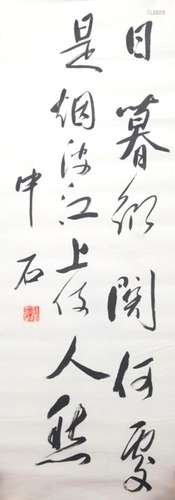 日暮鄉關何處
是烟波江上使人愁
申石